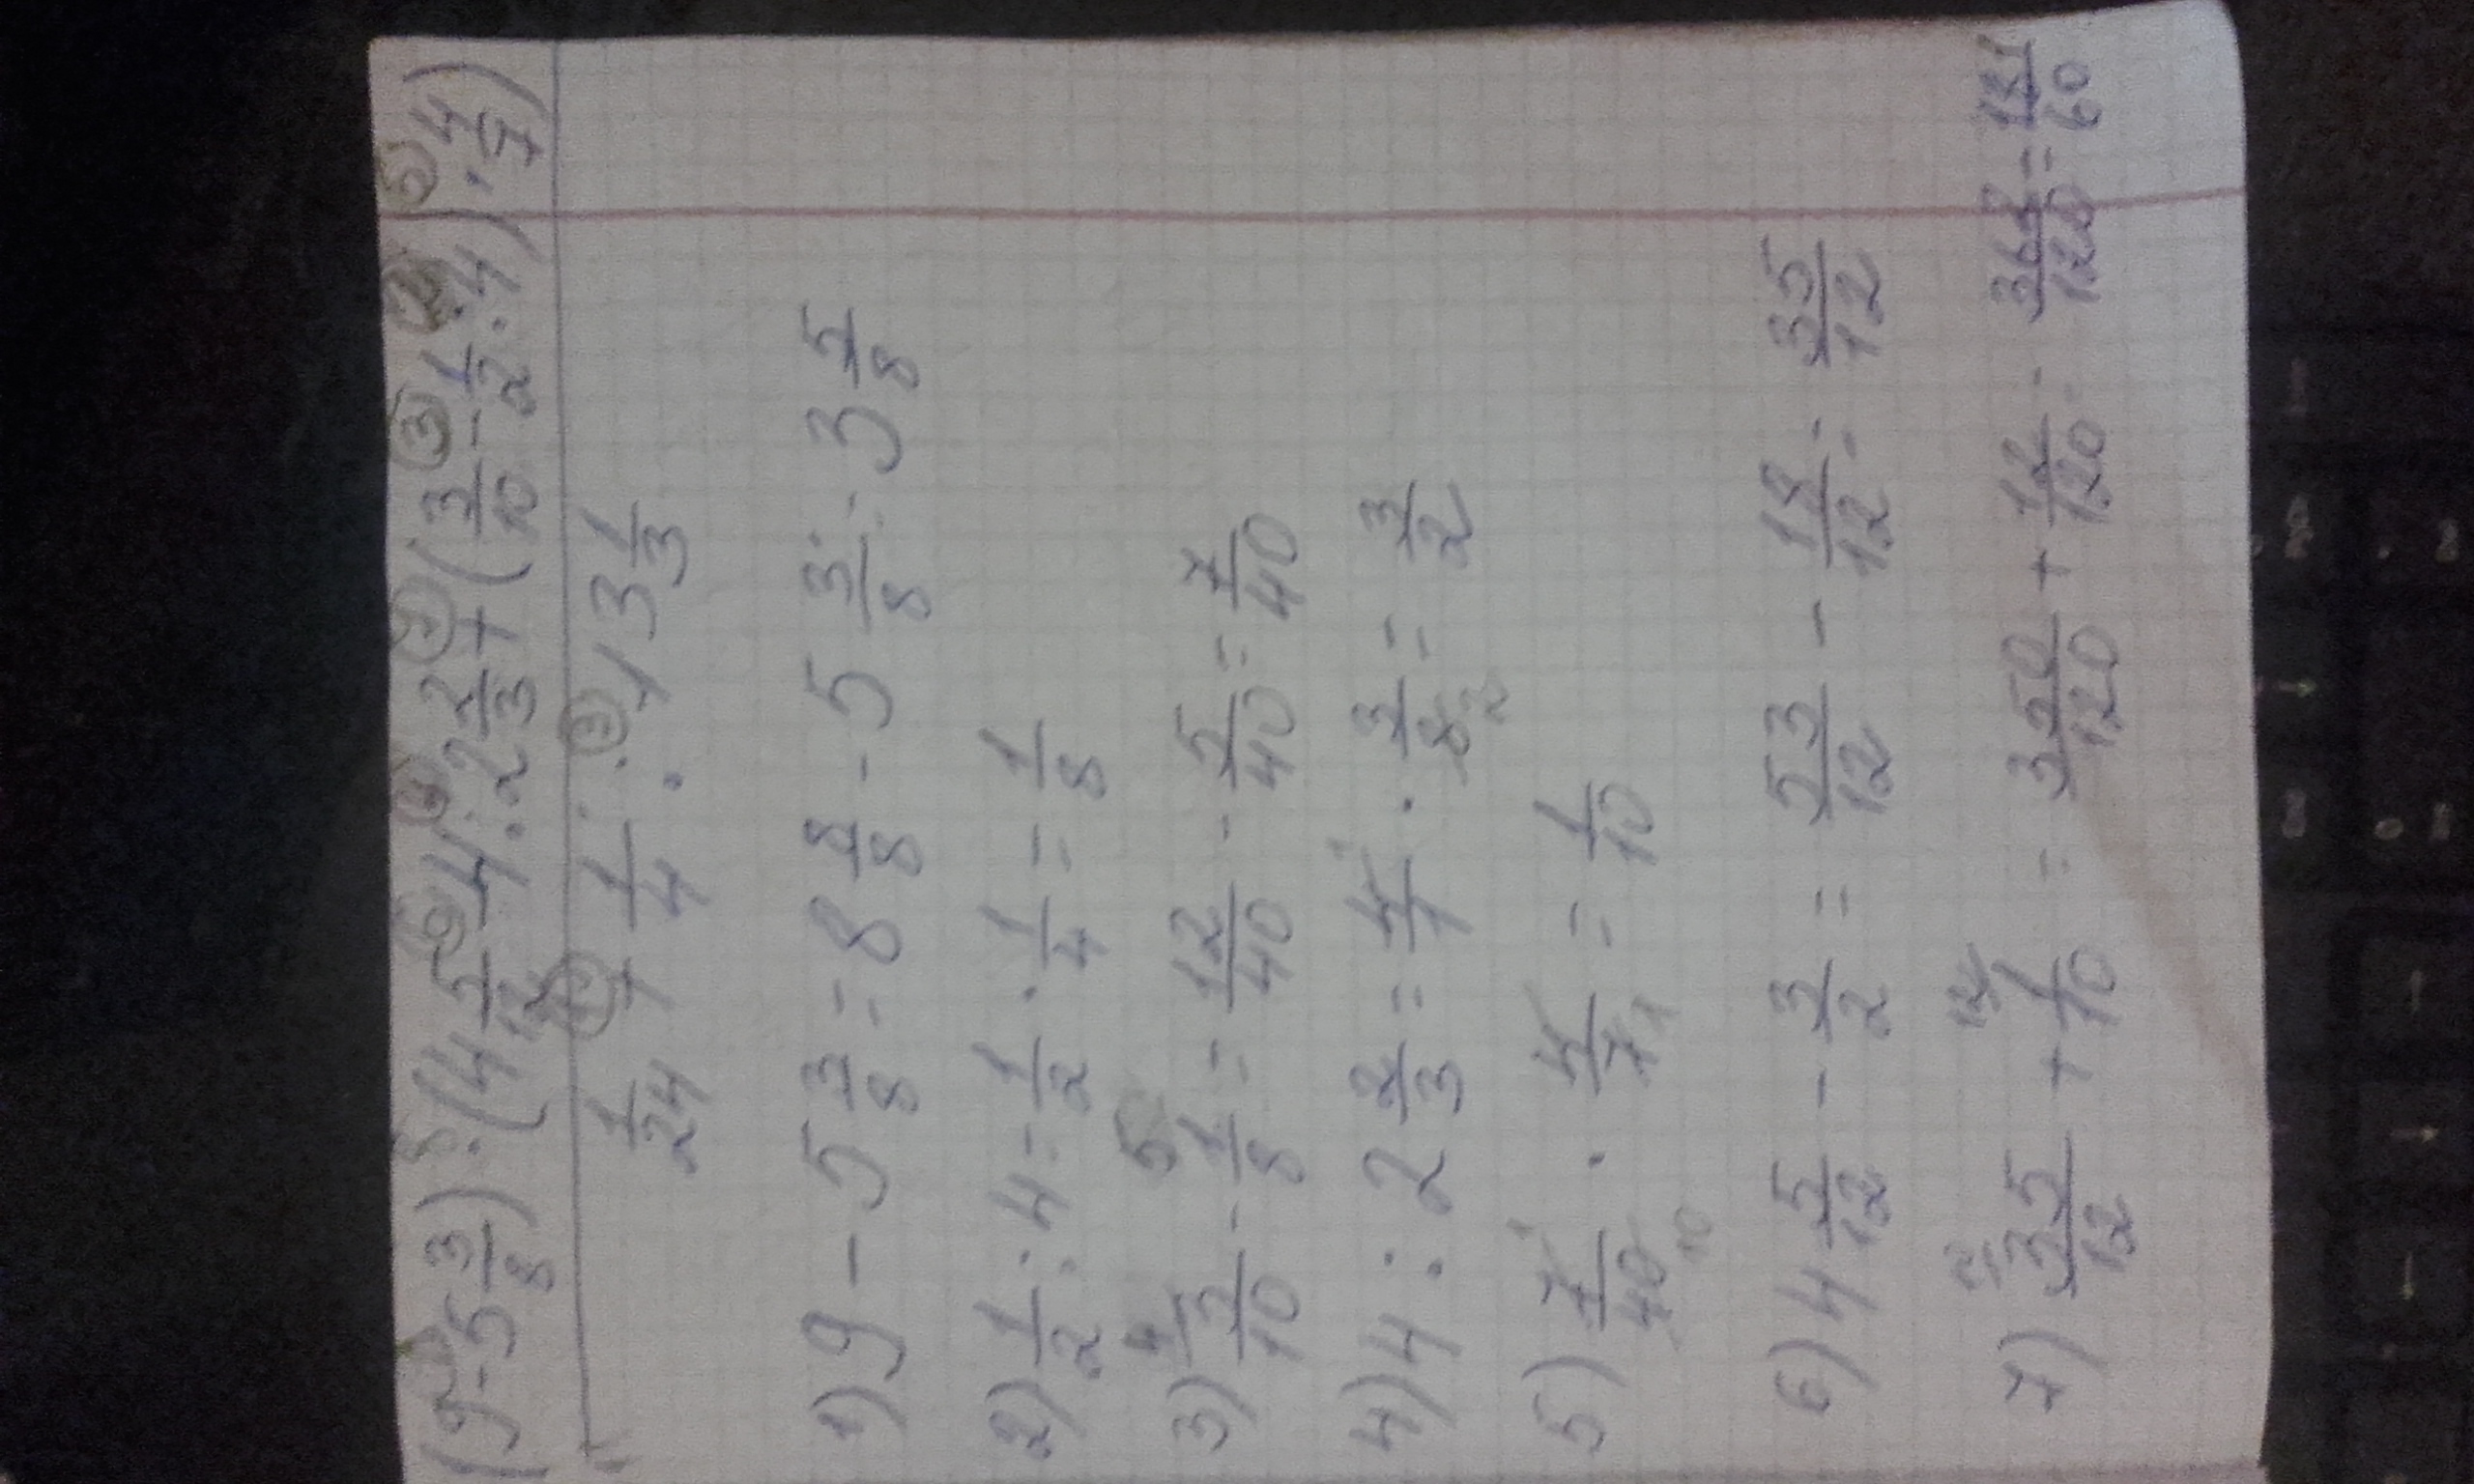 (9-5 3/8):(4 5/12-4:2 2/3+(3/10-1/2:4)·4/7)
1/24+1/4:13 1/3
1) 9-5 3/8=8 8/8-5 3/8=3 5/8
2) 1/2:4=1/2·1/4=1/8
3) 3/10-1/8=12/40-5/40=7/40
4) 4:2 2/3=4/1·3/8=3/2
5) 7/40·4/7=1/10
6) 4 5/12-3/2=53/12-18/12=35/12
7) 35/12+1/10=350/120+12/120=362/120=181/60